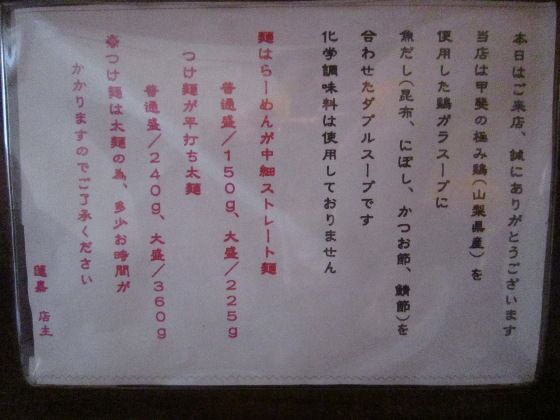 本日はご来店、誠にありがとうございます
当店は甲斐の極み鶏(山梨県産)を
使用した鶏ガラスープに
魚だし(昆布、にぼし、かつお節、鯖節)を
合わせたダブルスープです
化学調味料は使用しておりません
麺はらーめんが中細ストレート麺
普通盛/150g、大盛/225g
つけ麺が平打ち太麺
普通盛/240g、大盛/360g
※つけ麺は太麺の為、多少お時間が
かかりますのでご了承ください
蓮嘉 店主